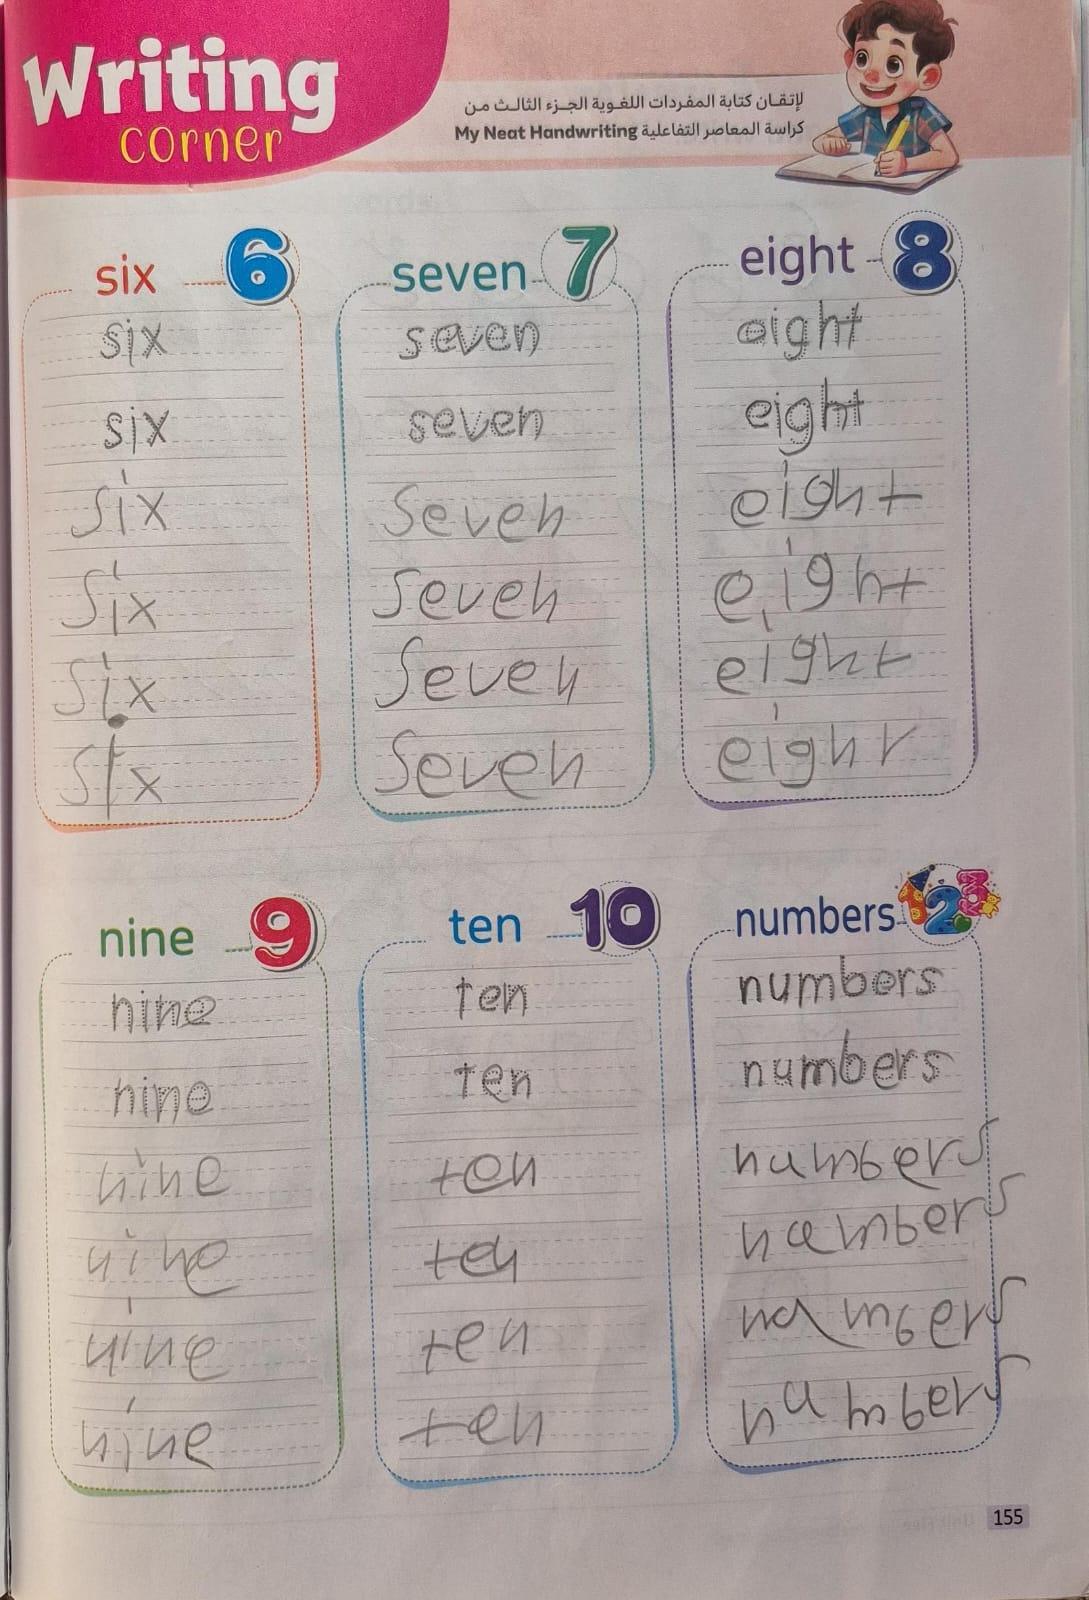 Writing
corner
لإتقان كتابة المفردات اللغوية الجزء الثالث من
كراسة المعاصر التفاعلية My Neat Handwriting
six 6
six
six
six
six
six
six
seven 7
seven
seven
seven
seven
seven
seven
eight 8
eight
eight
eight
eight
eight
eight
nine 9
nine
nine
nine
nine
nine
nine
ten 10
ten
ten
ten
ten
ten
ten
numbers 2
numbers
numbers
numbers
numbers
numbers
numbers
155